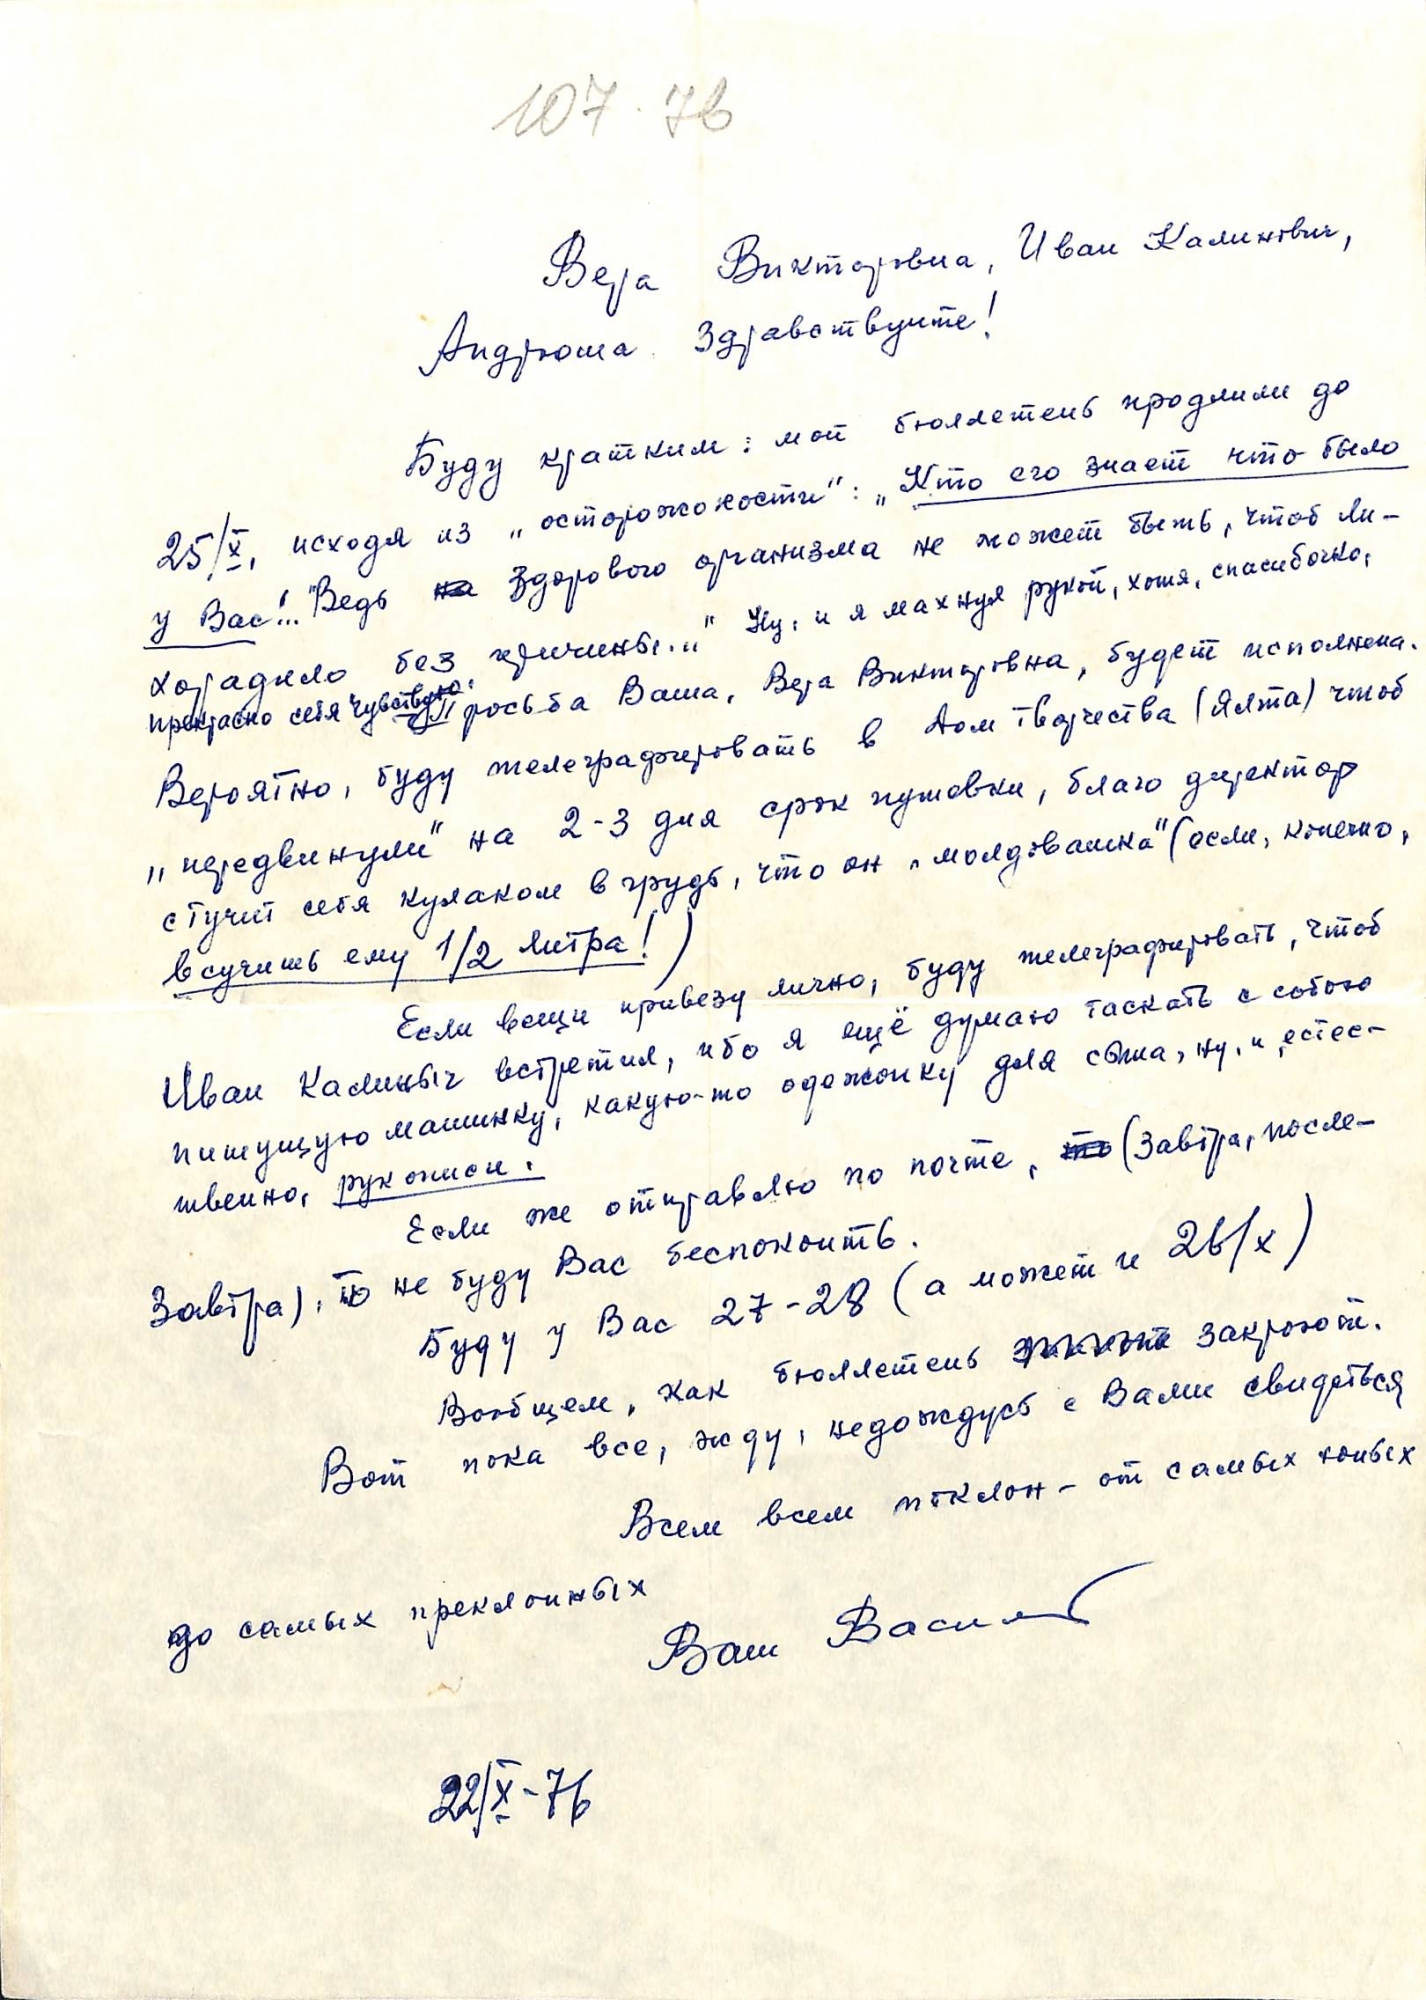 107-76
Вера Викторовна, Иван Калинович,
Андрюша. Здравствуйте!
Буду кратким: мой бюллетень продлили до
25/X, исходя из „осторожности": „Кто его знает что было
у Вас!.. "Ведь здорового организма не может быть, чтоб ли-
хорадило без причины..." Ну, и я махнул рукой, хотя, спасибочко,
прекрасно себя чувствую. Просьба Ваша, Вера Викторовна, будет исполнена.
Вероятно, буду телеграфировать в Дом творчества (Ялта) чтоб
„передвинули" на 2-3 дня срок путевки, благо директор
стучит себя кулаком в грудь, что он „молдовашка" (если, конечно,
всучишь ему 1/2 литра!)
Если вещи привезу лично, буду телеграфировать, чтоб
Иван Калиныч встретил, ибо я ещё думаю таскать с собою
пишущую машинку, какую-то одежонку для сына, ну, и, естес-
твенно, рукописи.
Если же отправлю по почте, (завтра, после-
завтра), то не буду Вас беспокоить.
Буду у Вас 27-28 (а может и 26/X)
Вообщем, как бюллетень закроют.
Вот пока все, жду, недождусь с Вами свидеться
Всем всем поклон - от самых юных
до самых преклонных
Ваш
22/X-76